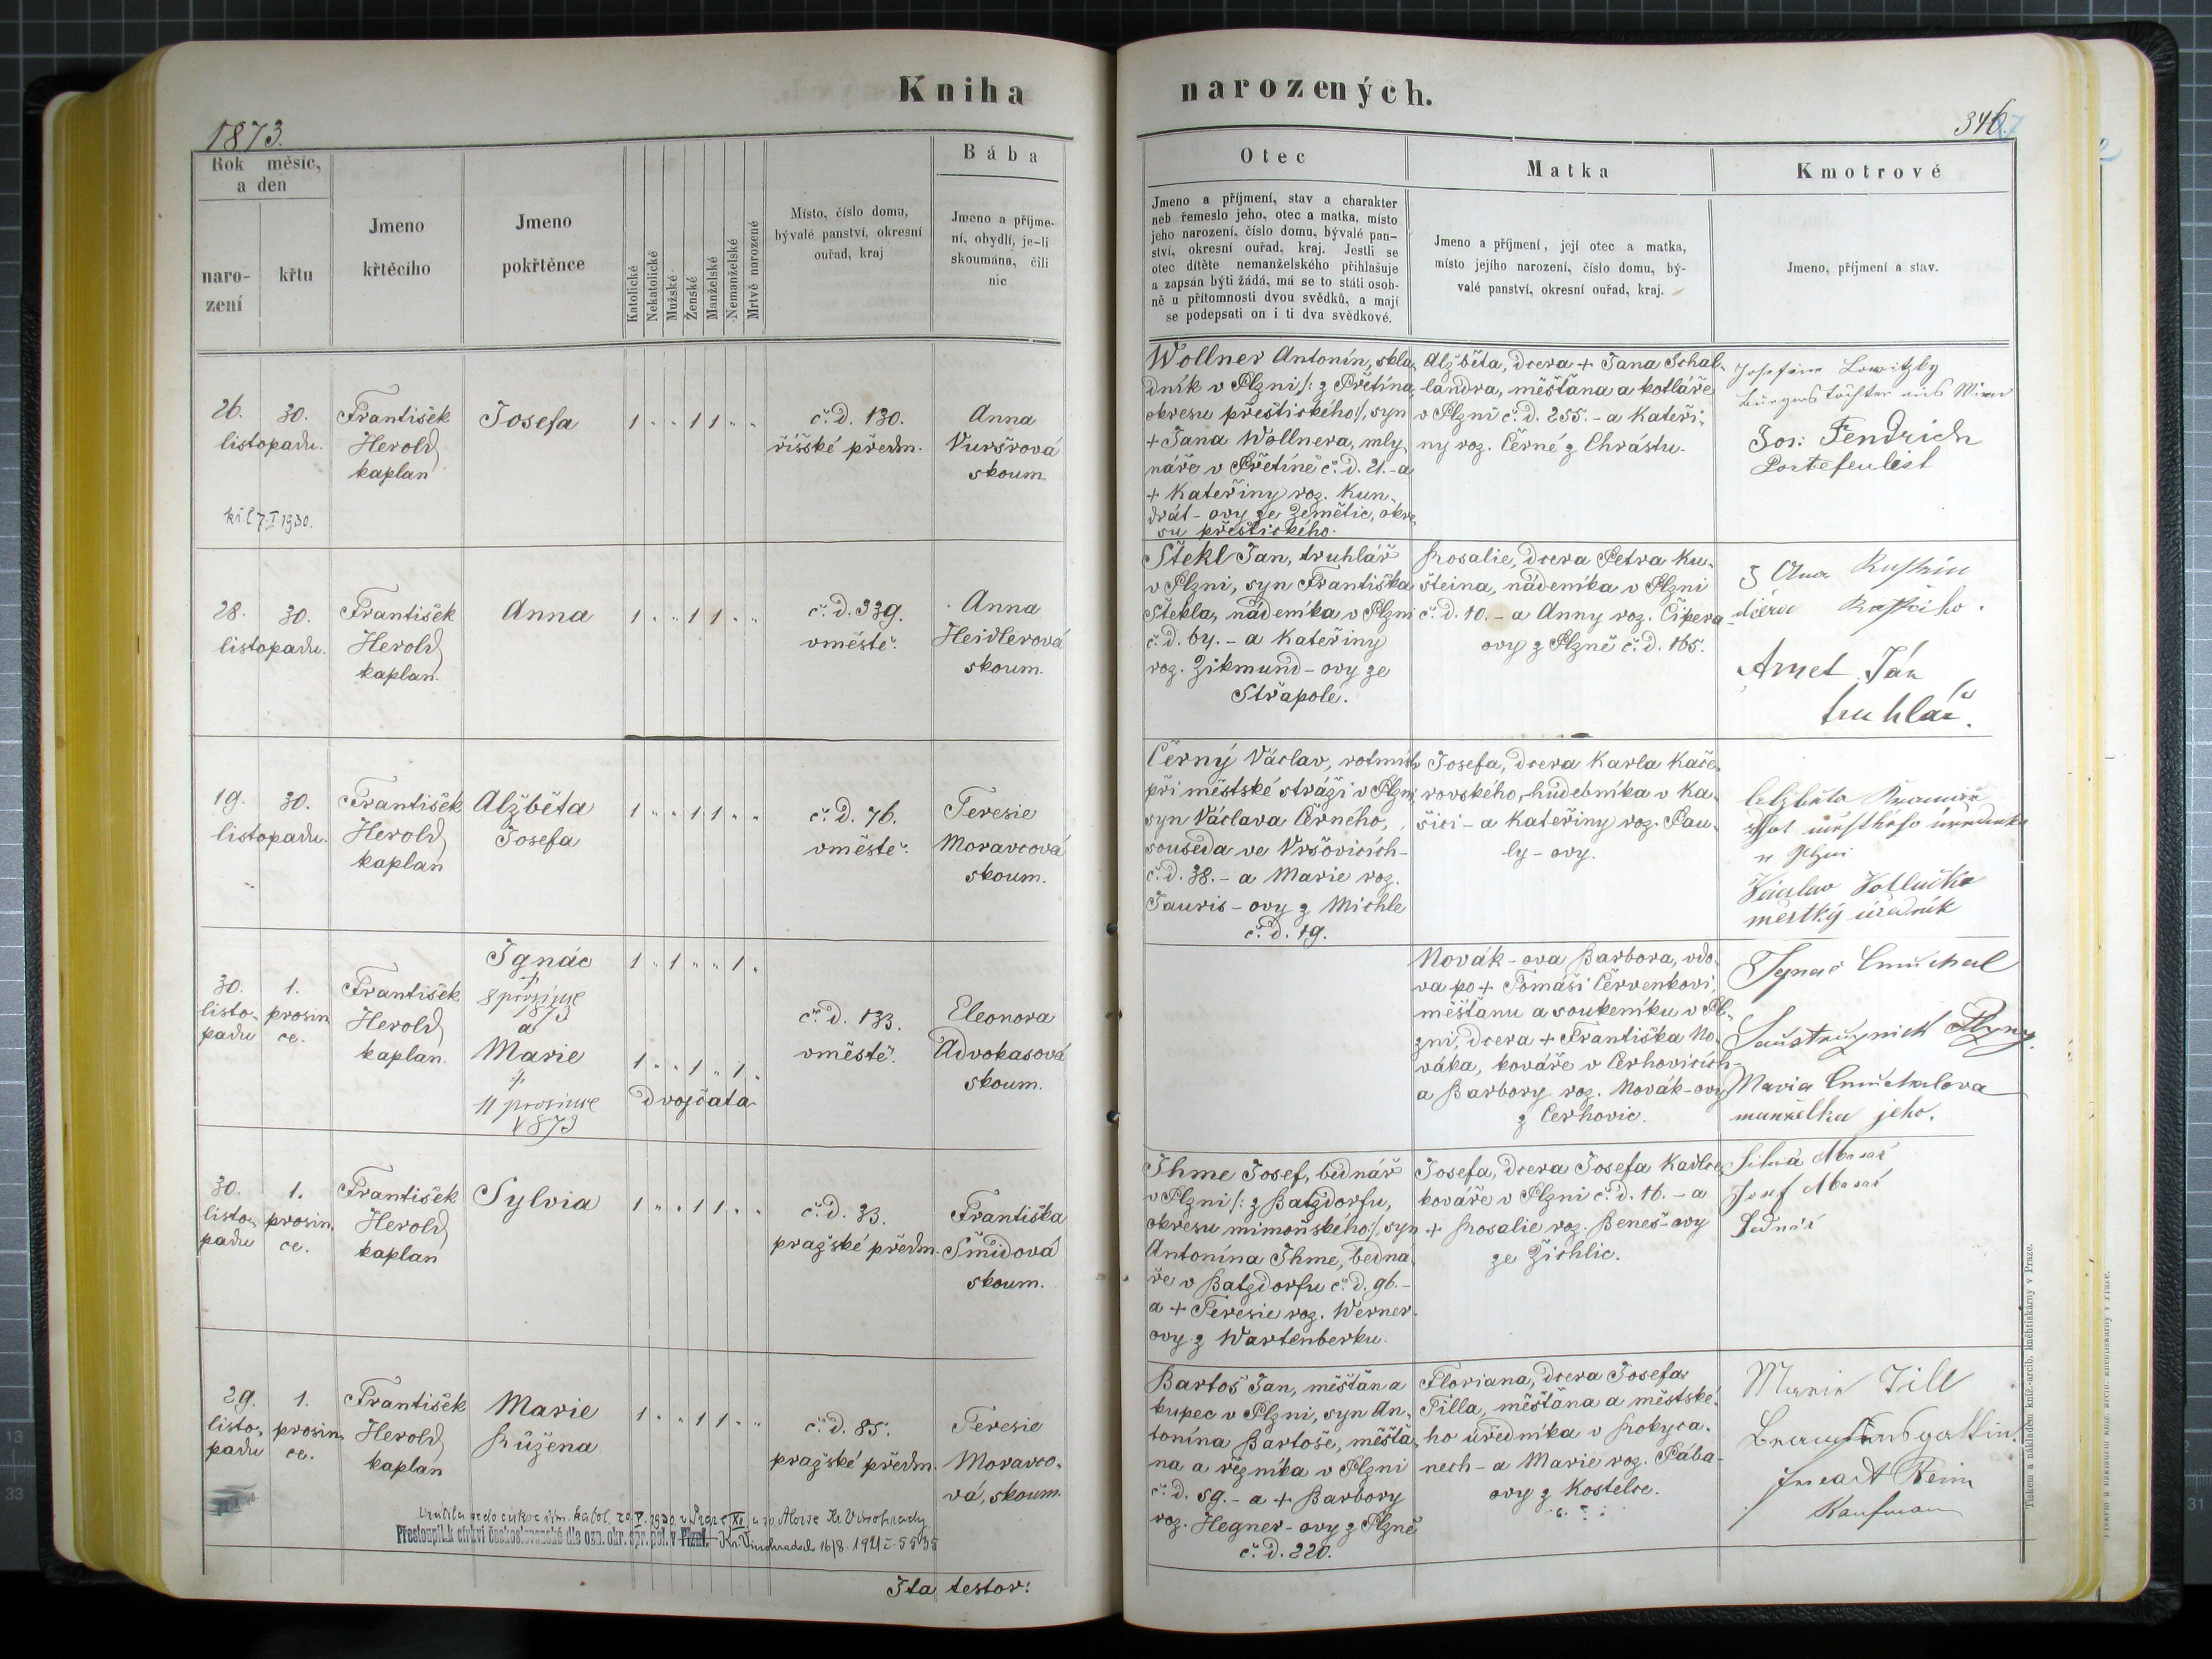 Kniha narozených.
1873.
346.
Rok měsíc,
a den
naro-
zení
křtu
Jmeno
křtěcího
Jmeno
pokřtěnce
Katolické
Nekatolické
Mužské
Ženské
Manželské
Nemanželské
Mrtvě narozené
Místo, číslo domu,
bývalé panství, okresní
ouřad, kraj
Bába
Jmeno a příjme-
ní, obydlí, je-li
skoumána, čili
nic
Otec
Jmeno a příjmení, stav a charakter
neb řemeslo jeho, otec a matka, místo
jeho narození, číslo domu, bývalé pan-
ství, okresní ouřad, kraj. Jestli se
otec dítěte nemanželského přihlašuje
a zapsán býti žádá, má se to státi osob-
ně u přítomnosti dvou svědků, a mají
se podepsati on i ti dva svědkové.
Matka
Jmeno a příjmení, její otec a matka,
místo jejího narození, číslo domu, bý-
valé panství, okresní ouřad, kraj.
Kmotrové
Jmeno, příjmení a stav.
26. 30.
listopadu.
7.I 1930.
František
Herold
kaplan
Josefa
1 " " 1 1 " "
č. d. 130.
říšské předm.
Anna
Vuršrová
skoum.
Wollner Antonín, skla-
dník v Plzni /: z Přetína,
okresu přeštického :/, syn
+ Jana Wollnera, mly-
náře v Přetíně č. d. 21. - a
+ Kateřiny roz. Kun-
drát - ovy ze Zemětic, okre-
su přeštického.
Alžběta, dcera + Jana Schal-
landra, měšťana a kotláře
v Plzni č. d. 255. - a Kateři-
ny roz. Černé z Chrástu.
Josefine Lowitzky
Bürgers Tochter aus Wien
Jos: Fendrich
Portefeulist
28. 30.
listopadu.
František
Herold
kaplan.
Anna
1 " " 1 1 " "
č. d. 339.
v městě.
Anna
Heidlerová
skoum.
Štekl Jan, truhlář
v Plzni, syn Františka
Štekla, nádeníka v Plzni
č. d. 64. - a Kateřiny
roz. Zikmund - ovy ze
Střapole.
Rosalie, dcera Petra Ku-
šteina, nádeníka v Plzni
č. d. 10. - a Anny roz. Čipera-
ovy z Plzně č. d. 165.
Arnet Ján
truhlář.
19. 30.
listopadu.
František
Herold
kaplan
Alžběta
Josefa
1 " " 1 1 " "
č. d. 76.
v městě.
Teresie
Moravcová
skoum.
Černý Václav, rotmistr
při městské stráži v Plzni
syn Václava Černého,
souseda ve Vršovicích
č. d. 38. - a Marie roz.
Tauris - ovy z Michle
č. d. 19.
Josefa, dcera Karla Kače-
rovského, hudebníka v Ka-
šici - a Kateřiny roz. Pau-
ly - ovy.
v Plzni
Václav
městký úředník
30. 1.
listo- prosin
padu ce.
František
Herold
kaplan.
Ignác
+
8 prosince
1873
a
Marie
+
11 prosince
1873
1 " 1 " " 1 "
1 " " 1 " 1 "
Dvojčata
č. d. 133.
v městě.
Eleonora
Advokasová
skoum.
Novák - ova Barbora, vdo-
va po + Tomáši Červenkovi,
měšťanu a soukeníku v Pl-
zni, dcera + Františka No-
váka, kováře v Cerhovicích
a Barbory roz. Novák - ovy
z Cerhovic.
Ignac Cmuchal
Maria Cmuchalova
manželka jeho.
30. 1.
listo- prosin-
padu ce.
František
Herold
kaplan
Sylvia
1 " " 1 1 " "
č. d. 33.
pražské předm.
Františka
Šmidová
skoum.
Ihme Josef, bednář
v Plzni /: z Batzdorfu,
okresu mimoňského :/, syn
Antonína Ihme, bedna-
ře v Batzdorfu č. d. 96. -
a + Teresie roz. Werner-
ovy z Wartenberku.
Josefa, dcera Josefa Kadlce
kováře v Plzni č. d. 16. - a
+ Rosalie roz. Beneš - ovy
ze Žichlic.
Josef
bednář
29. 1.
listo- prosin-
padu ce.
František
Herold
kaplan
Marie
Růžena
1 " " 1 1 " "
č. d. 85.
pražské předm.
Teresie
Moravco-
vá, skoum.
Bartoš Jan, měšťan a
kupec v Plzni, syn An-
tonína Bartoše, měšťa-
na a řezníka v Plzni
č. d. 59. - a + Barbory
roz. Hegner - ovy z Plzně
č. d. 220.
Floriana, dcera Josefa
Tilla, měšťana a městské-
ho úředníka v Rokyca-
nech - a Marie roz. Pába-
ovy z Kostelce.
Marie Till
Kaufmann
Vrátila se do církve řím. katol. 1930 v Praze XII
Přestoupil k církvi československé dle ozn. okr. spr. pol. v Plzni. Kr. Vinohradech 16/8 1921 č. 5535
Ita testor:
Tiskem a nákladem kníž.-arcib. knihtiskárny v Praze.